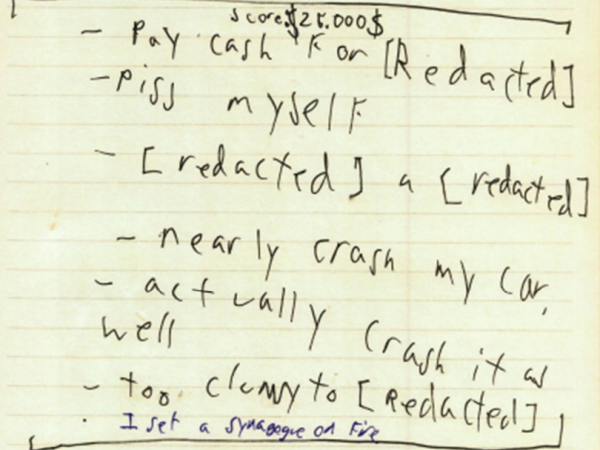 score:$25.000$
- Pay cash For [Redacted]
- Piss myself
- [redacted] a [redacted]
- nearly crash my car,
- actually crash it as
well
- too clumsy to [Redacted]
. I set a synagogue on fire